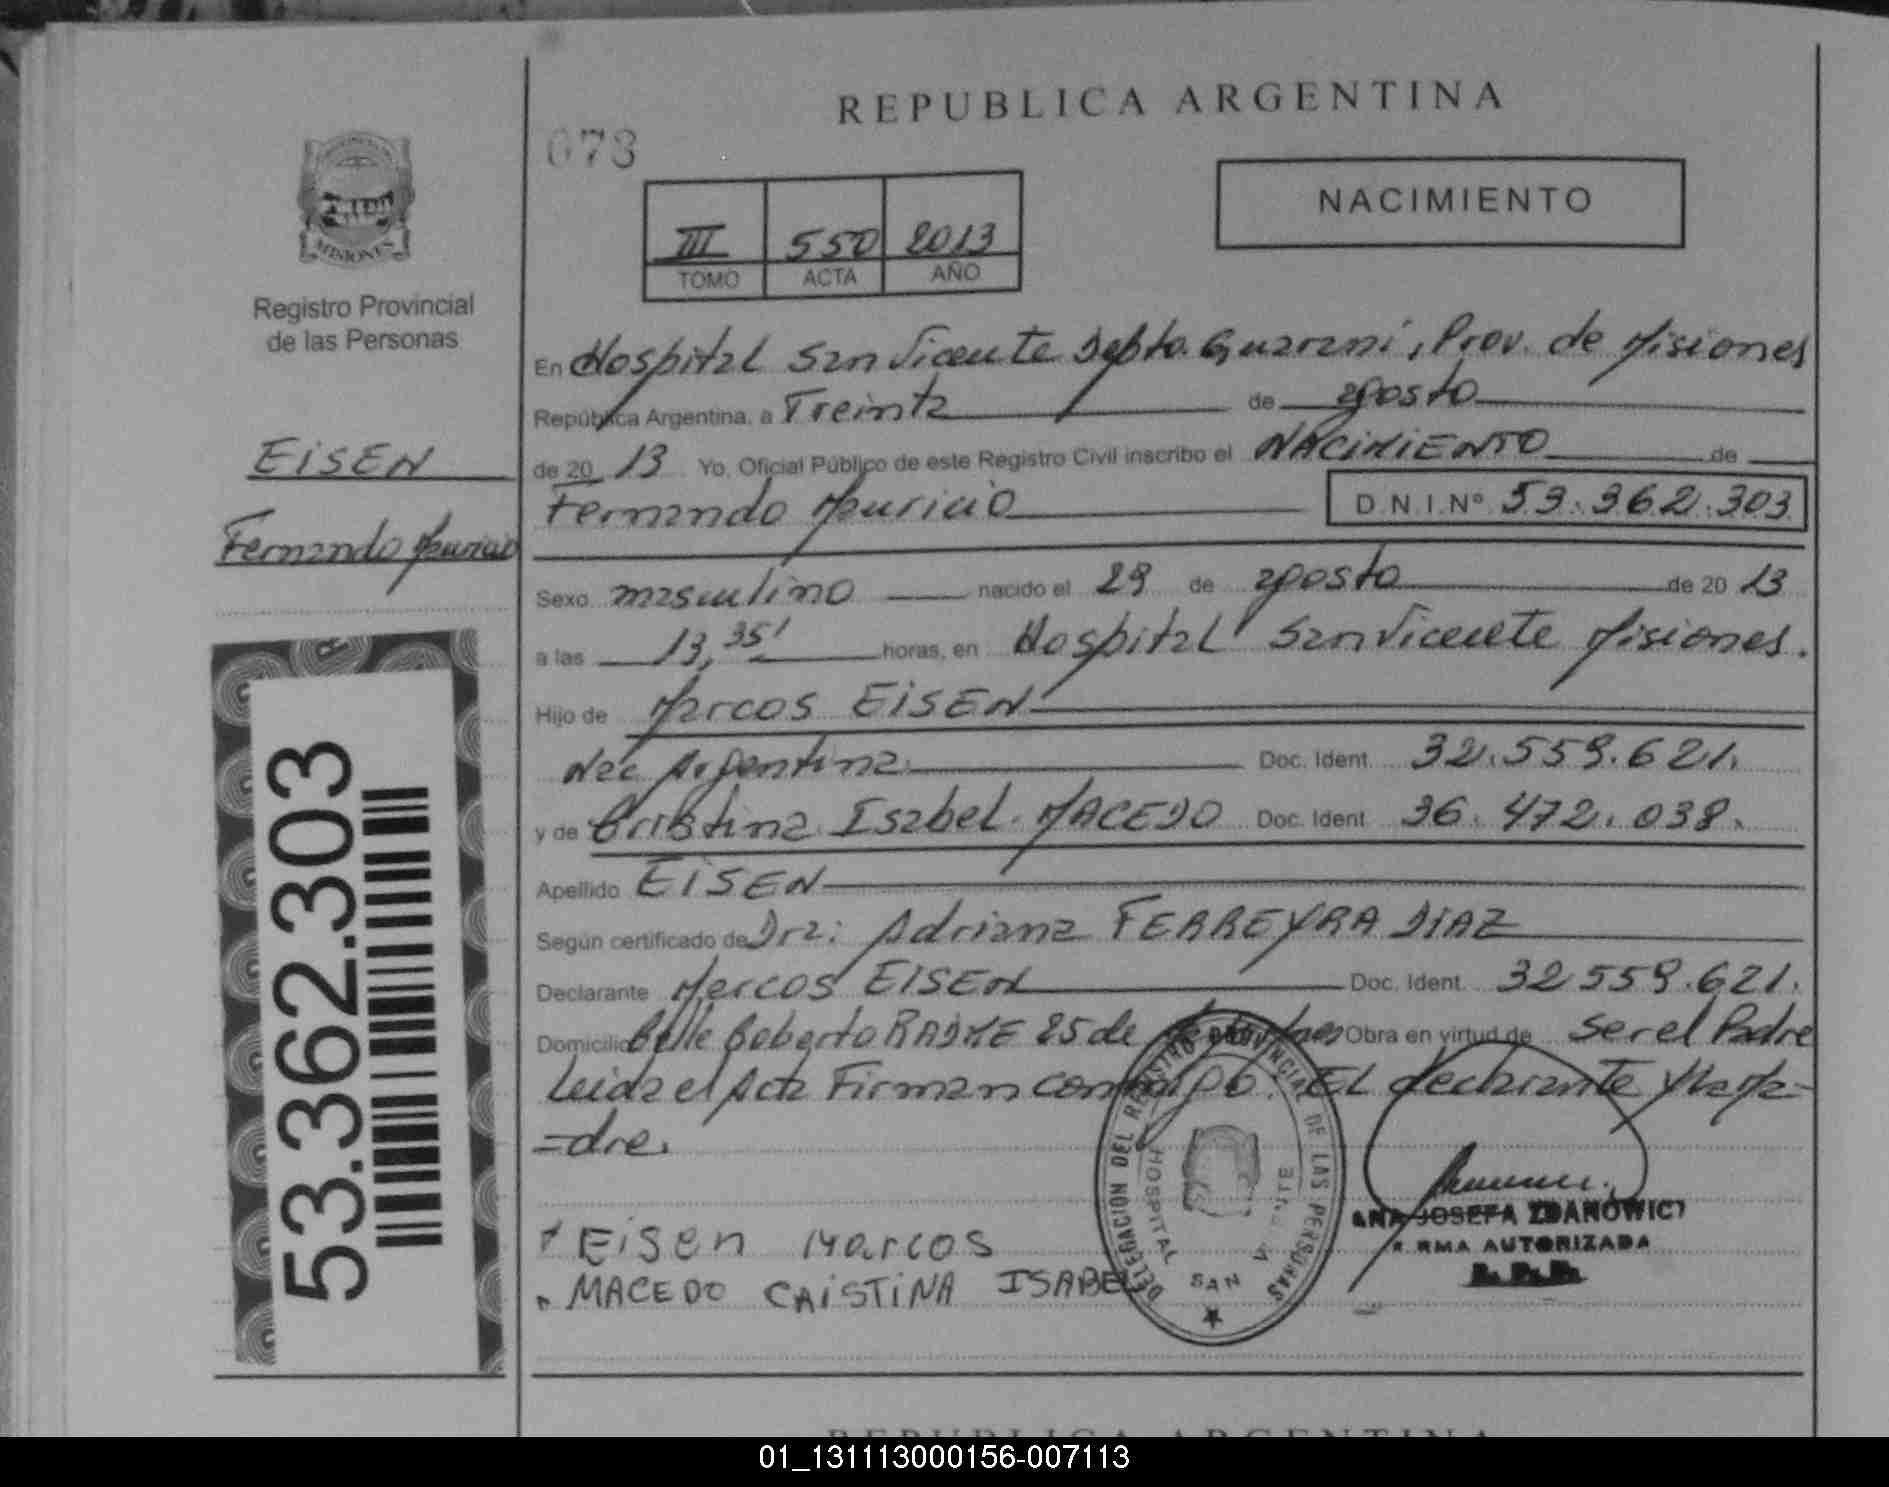 REPUBLICA ARGENTINA
073
NACIMIENTO
III 550 2013
TOMO ACTA AÑO
MISIONES
Registro Provincial
de las Personas
EISEN
Fernando Mauricio
53.362.303
En Hospital San Vicente Depto. Guaraní, Prov. de Misiones
República Argentina, a Treinta de agosto
de 20 13 Yo, Oficial Público de este Registro Civil inscribo el NACIMIENTO de
Fernando Mauricio D.N.I.Nº 53.362.303
Sexo masculino nacido el 29 de agosto de 20 13
a las 13,35' horas, en Hospital San Vicente Misiones.
Hijo de Marcos EISEN
Nac Argentina Doc. Ident. 32.559.621.
y de Cristina Isabel MACEDO Doc. Ident 36.472.038.
Apellido EISEN
Según certificado de Dra: Adriana FERREYRA DIAZ
Declarante Marcos EISEN Doc. Ident. 32559.621.
Domicilio Calle Roberto RADKE 25 de Obra en virtud de Ser el Padre
Leida el Acta Firman conmigo. El declarante y la Ma=
=dre.
Eisen Marcos
MACEDO CRISTINA ISABEL
DELEGACION DEL REGISTRO PROVINCIAL DE LAS PERSONAS
HOSPITAL SAN VICENTE
ANA JOSEFA ZDANOWICZ
FIRMA AUTORIZADA
R.P.P.
REPUBLICA ARGENTINA
01_131113000156-007113